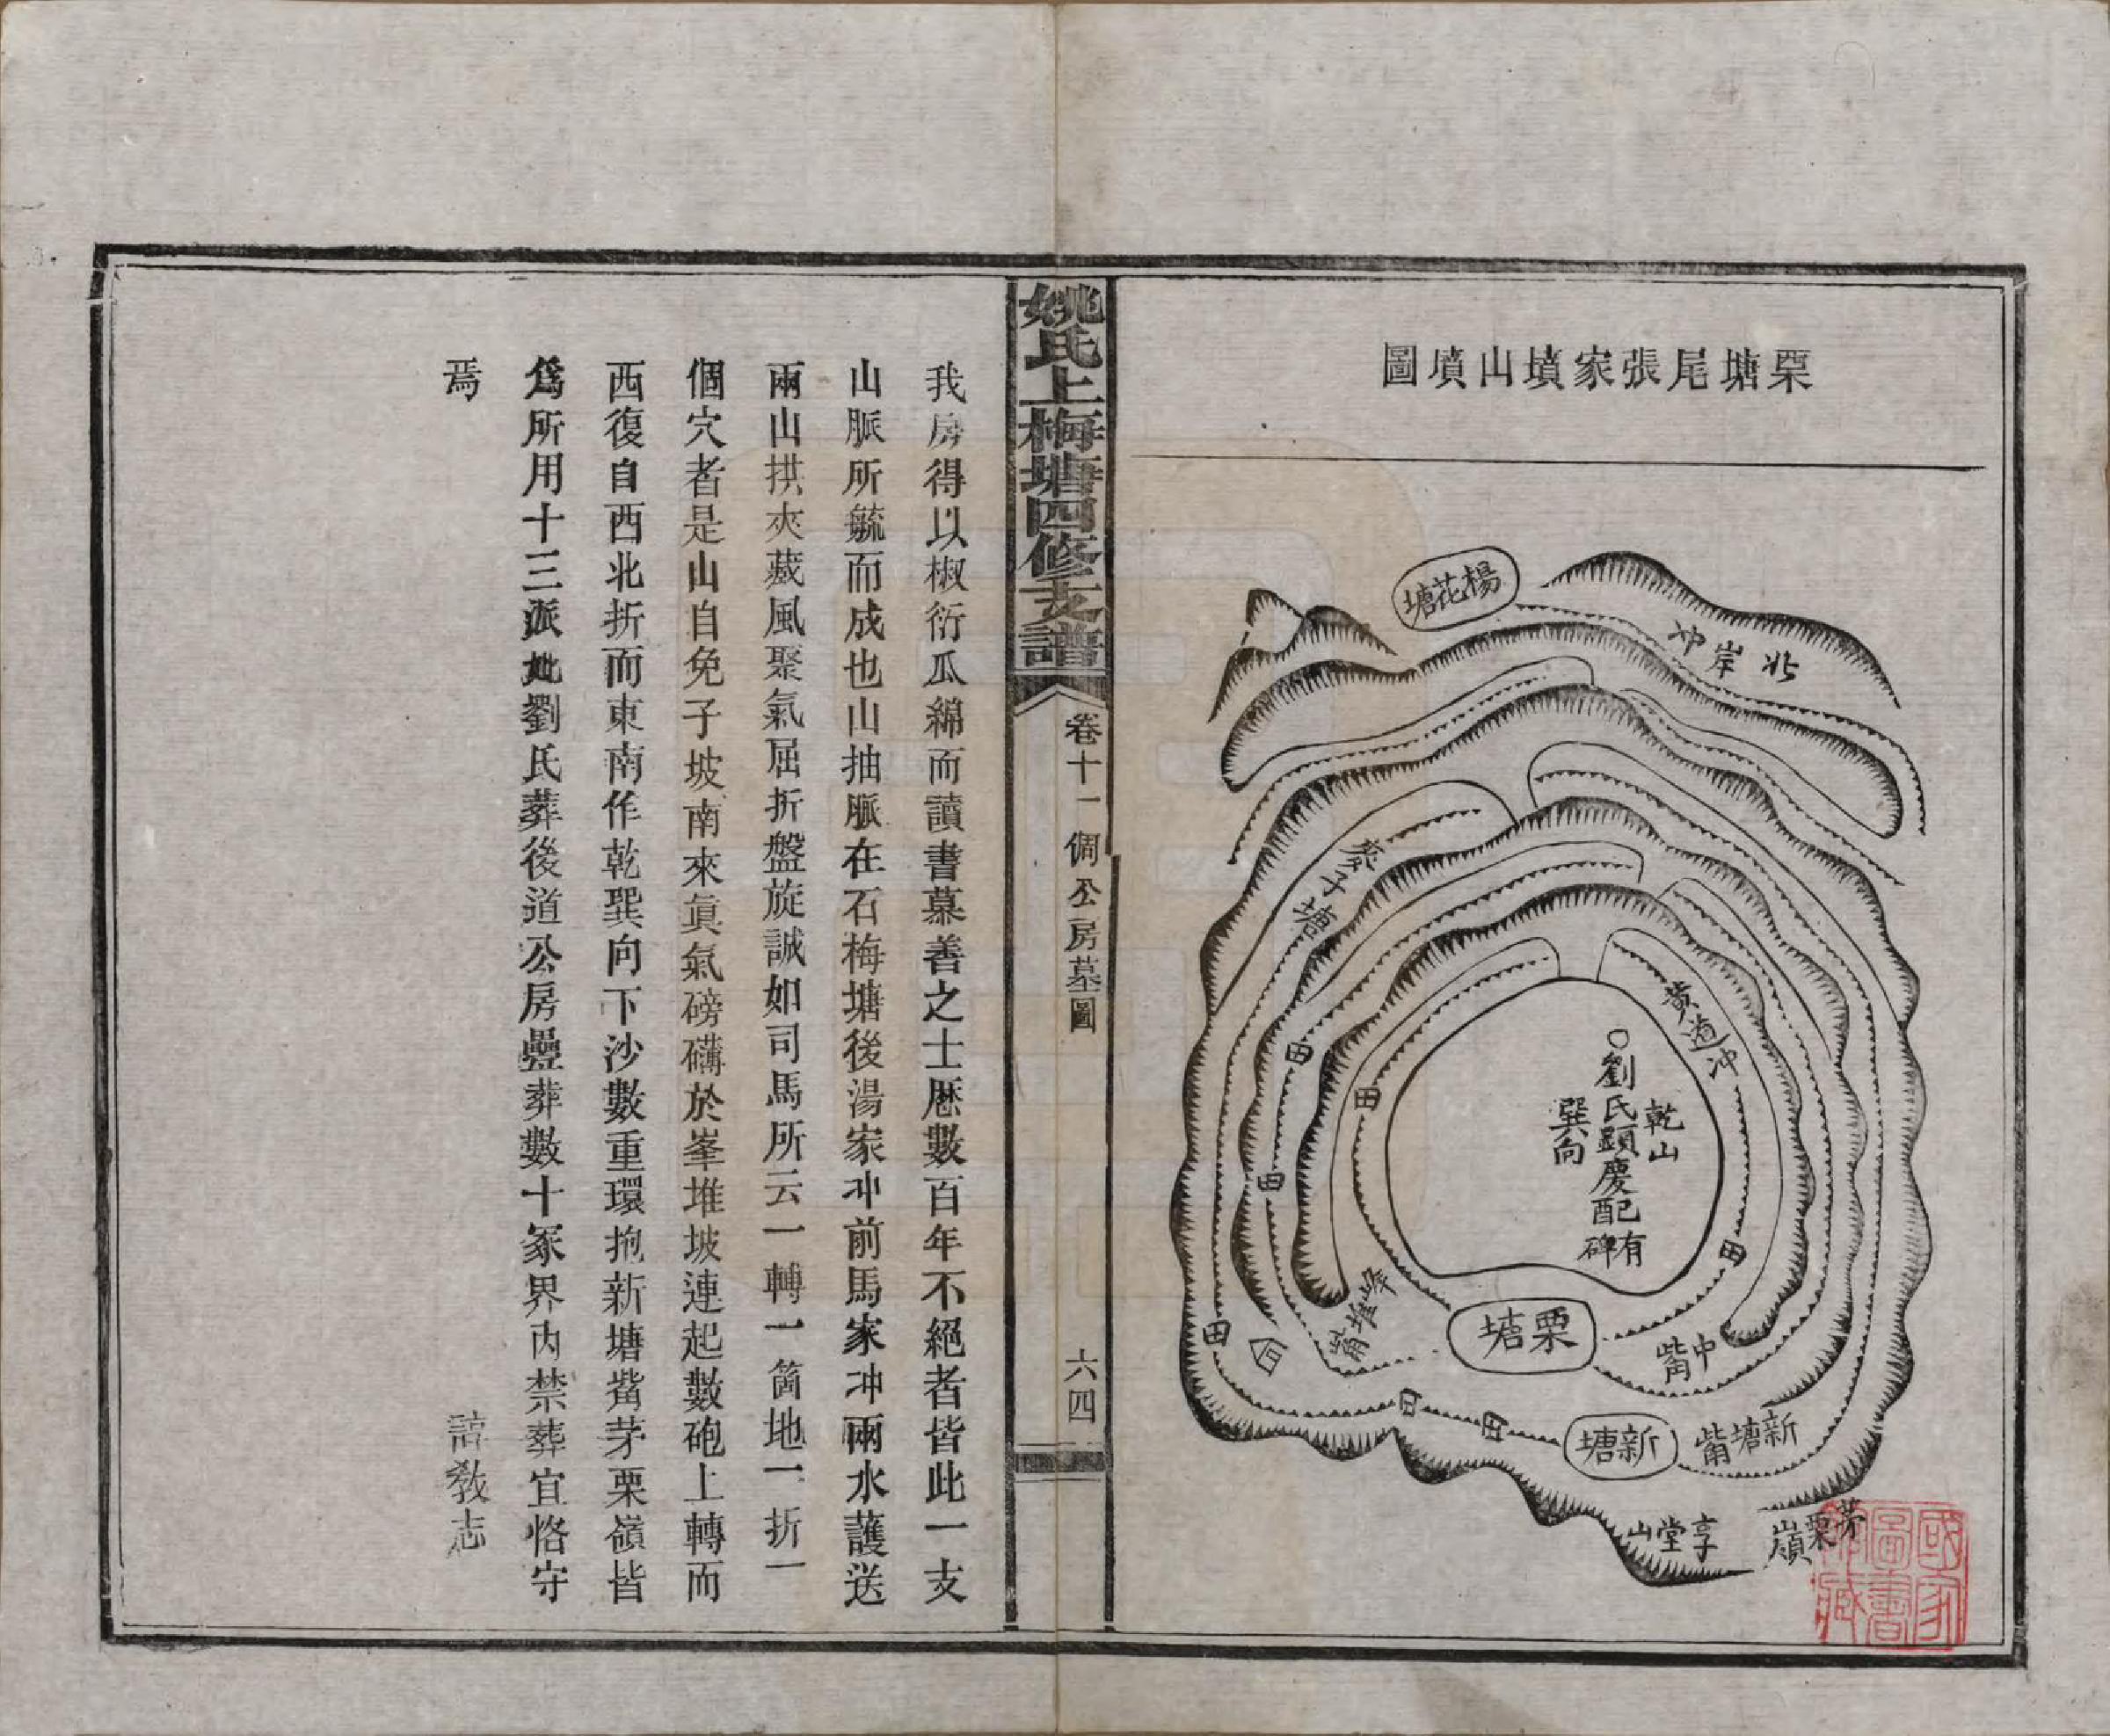 栗塘尾張家墳山墳圖
楊花塘
北岸冲
麥子塘
黃道冲
乾山
○劉氏顯慶配有碑
巽向
栗塘
峯堆觜
中觜
新塘
新塘觜
茅栗嶺
享堂山
田
田
田
田
田
田
田
國家圖書館藏
姚氏上梅塘四修支譜
卷十一 倜公房墓圖
六四
我房得以椒衍瓜綿而讀書慕善之士厯數百年不絕者皆此一支
山脈所毓而成也山抽脈在石梅塘後湯家冲前馬家冲兩水護送
兩山拱夾藏風聚氣屈折盤旋誠如司馬所云一轉一箇地一折一
個穴者是山自免子坡南來眞氣磅礴於峯堆坡連起數砲上轉而
西復自西北折而東南作乾巽向下沙數重環抱新塘觜茅栗嶺皆
爲所用十三派妣劉氏葬後道公房疊葬數十冢界內禁葬宜恪守
焉
諳敎志